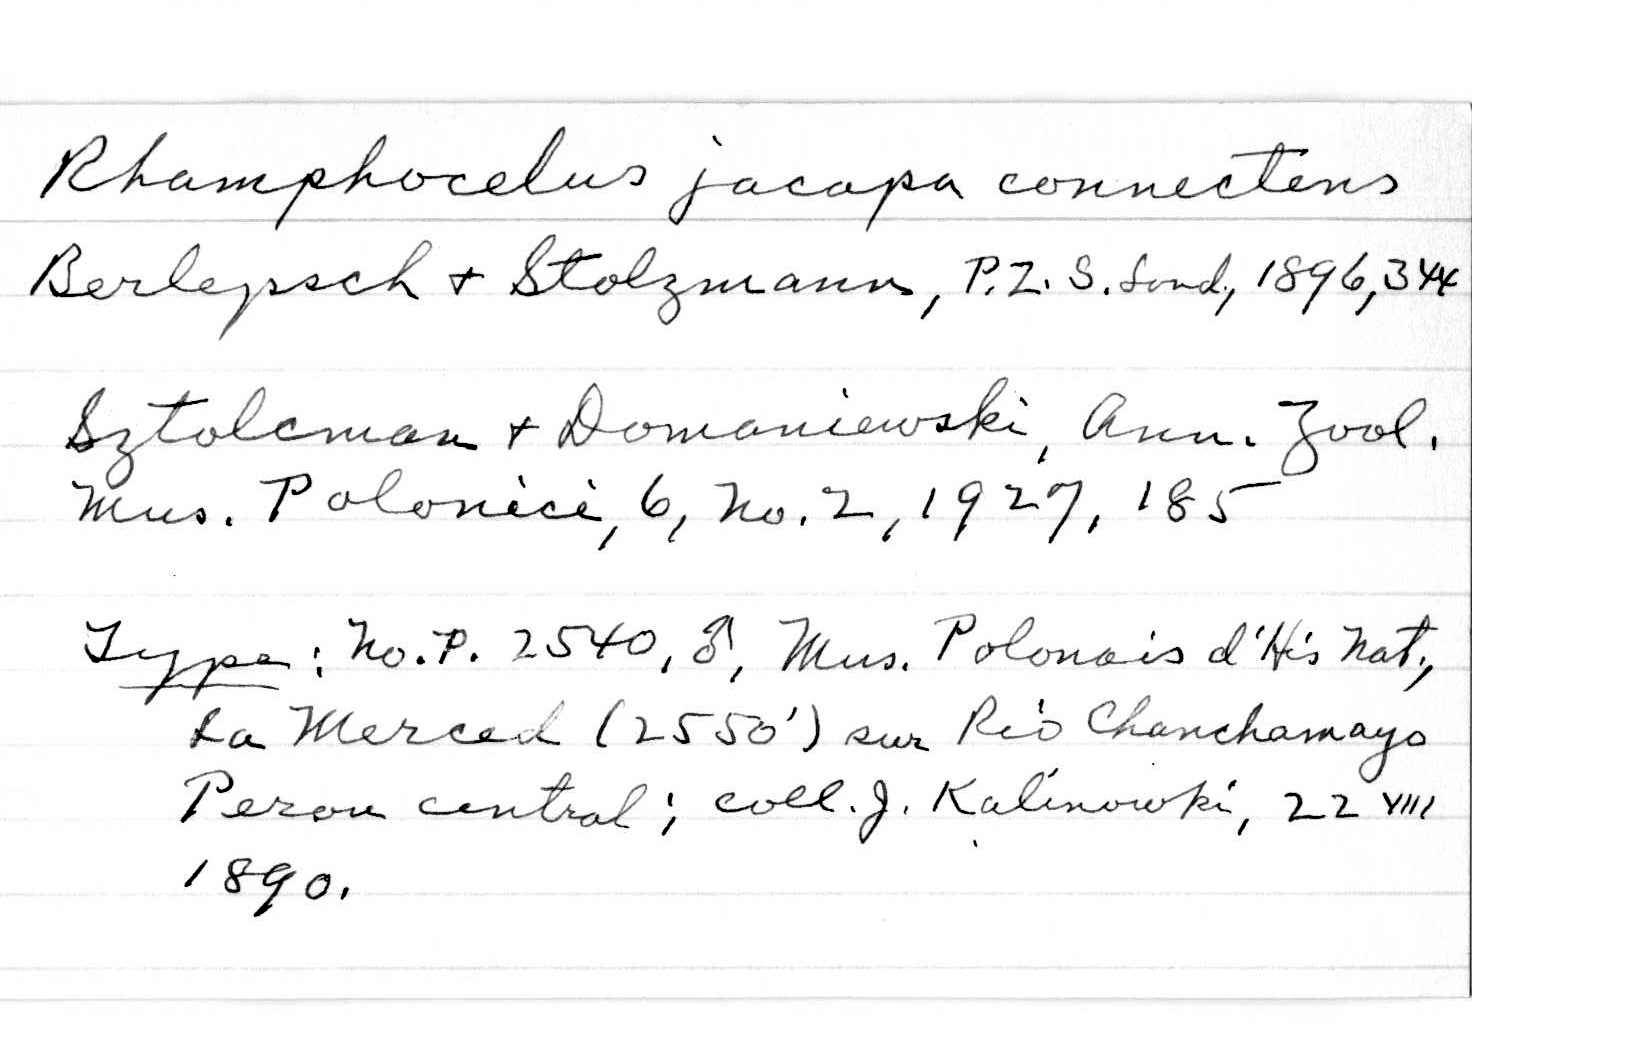 Rhamphocelus jacapa connectens
Berlepsch + Stolzmann, P.Z.S. Lond., 1896, 344
Sztolcman + Domaniewski, Ann. Zool.
Mus. Polonici, 6, No. 2, 1927, 185
Type: No. P. 2540, ♂, Mus. Polonais d'His Nat.,
La Merced (2550') sur Rio Chanchamayo
Perou central; coll. J. Kalinowki, 22 VIII
1890.